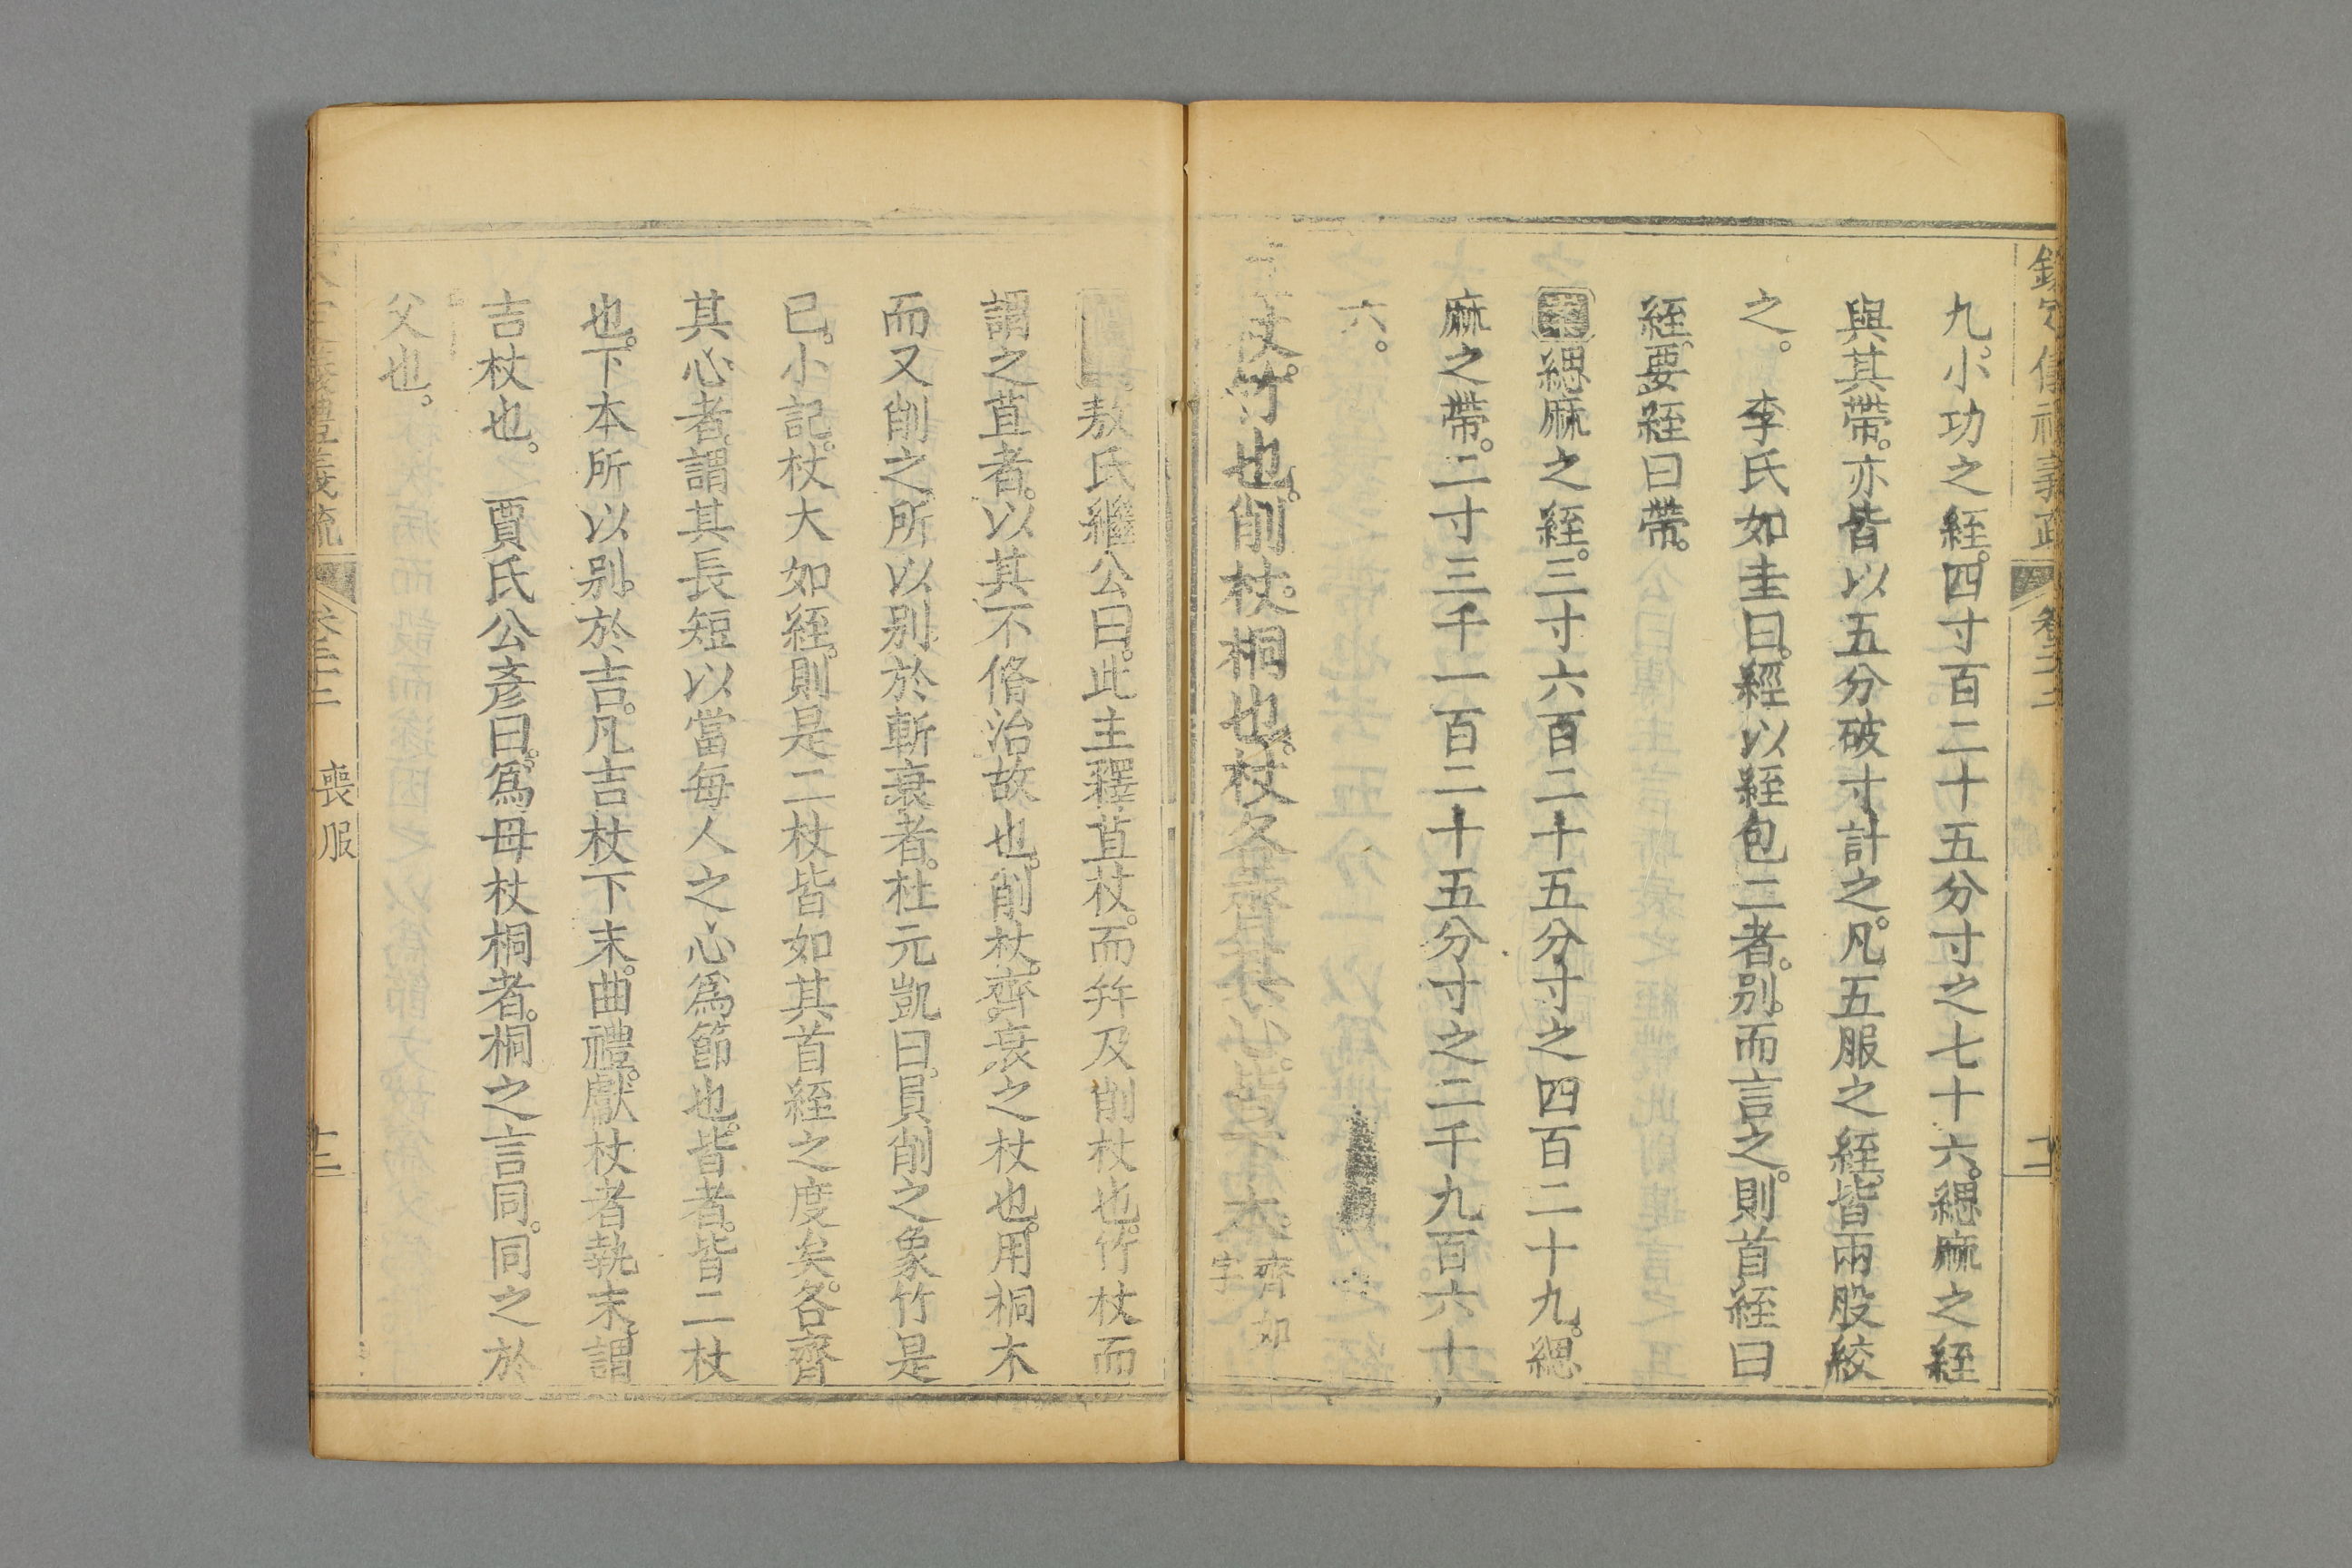 欽定儀禮義疏 卷二十二 十二
九。小功之絰。四寸百二十五分寸之七十六。緦麻之絰
與其帶。亦皆以五分破寸計之。凡五服之絰。皆兩股絞
之。 李氏如圭曰。經以絰包二者。別。而言之。則首絰曰
絰。要。絰曰帶。
案 緦麻之絰。三寸六百二十五分寸之四百二十九。緦
麻之帶。二寸三千一百二十五分寸之二千九百六十
六。
杖。竹也。削杖。桐也。杖各齊其心。皆下本。
齊如字
敖氏繼公曰。此主釋苴杖。而幷及削杖也。竹杖而
謂之苴者。以其不脩治故也。削杖。齊。衰之杖也。用桐木
而又削之。所以別於斬衰者。杜元凱曰。員削之象竹是
已。小記。杖大如絰。則是二杖皆如其首絰之度矣。各齊
其心者。謂其長短以當每人之心爲節也。皆者。皆二杖
也。下本所以別。於吉。凡吉杖下末。曲禮。獻杖者執末。謂
吉杖也。 賈氏公彥曰。爲母杖桐者。桐之言同。同之於
父也。
儀禮義疏 卷二十二 喪服 十二